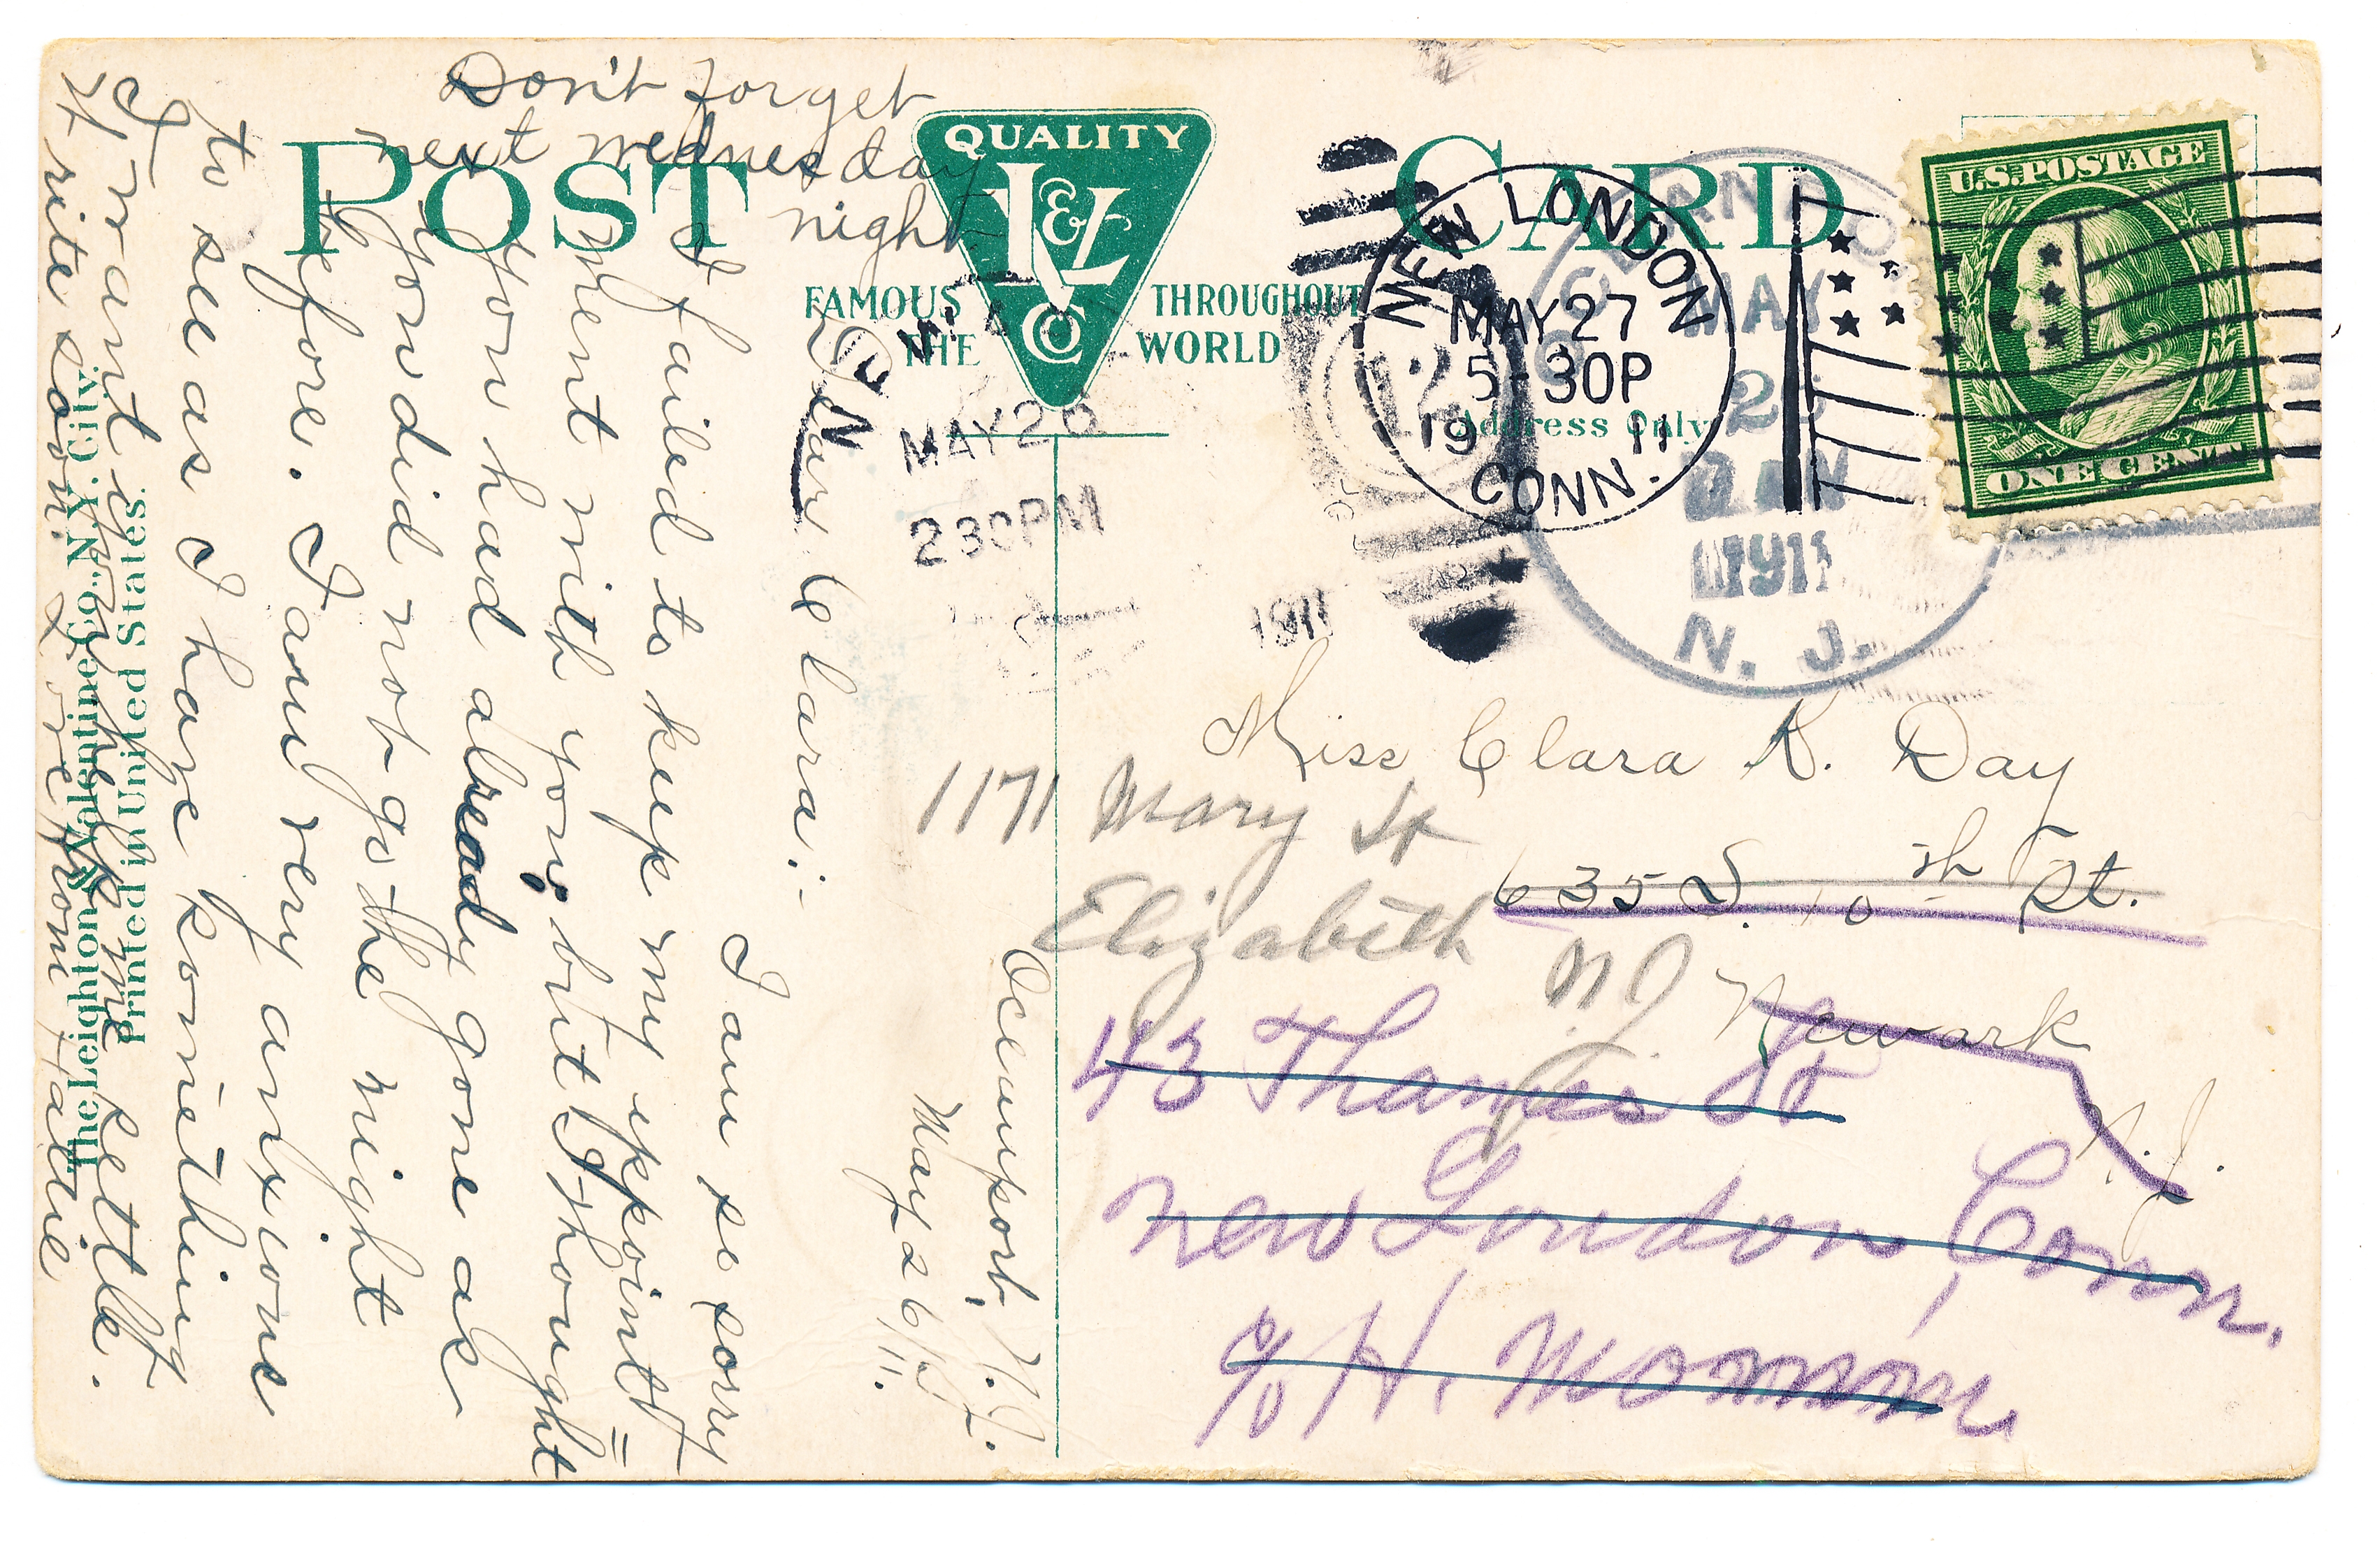 POST CARD
QUALITY
L & V
Co
FAMOUS THROUGHOUT
THE WORLD
Address Only
U.S. POSTAGE
ONE CENT
NEW LONDON
MAY 27
5-30P
19 11
CONN.
OCEANPORT
MAY
DAM
1911
N. J.
NEWA
MAY 26
2 30PM
1911
Oceanport, N.J.
May 26/11.
Dear Clara:-
I am so sorry
I failed to keep my appoint=
ment with you, but I thought
you had already gone as
you did not go the night
before. I am very anxious
to see as I have something
I want
write soon. Love from Hattie
Don't forget
next wednesday
night
Miss Clara K. Day
635 S. 10th St.
Newark
N. J.
1171 Mary St
Elizabeth
NJ
43 Thames St
New London, Conn.
c/o H.
The Leighton & Valentine Co., N.Y. City.
Printed in United States.